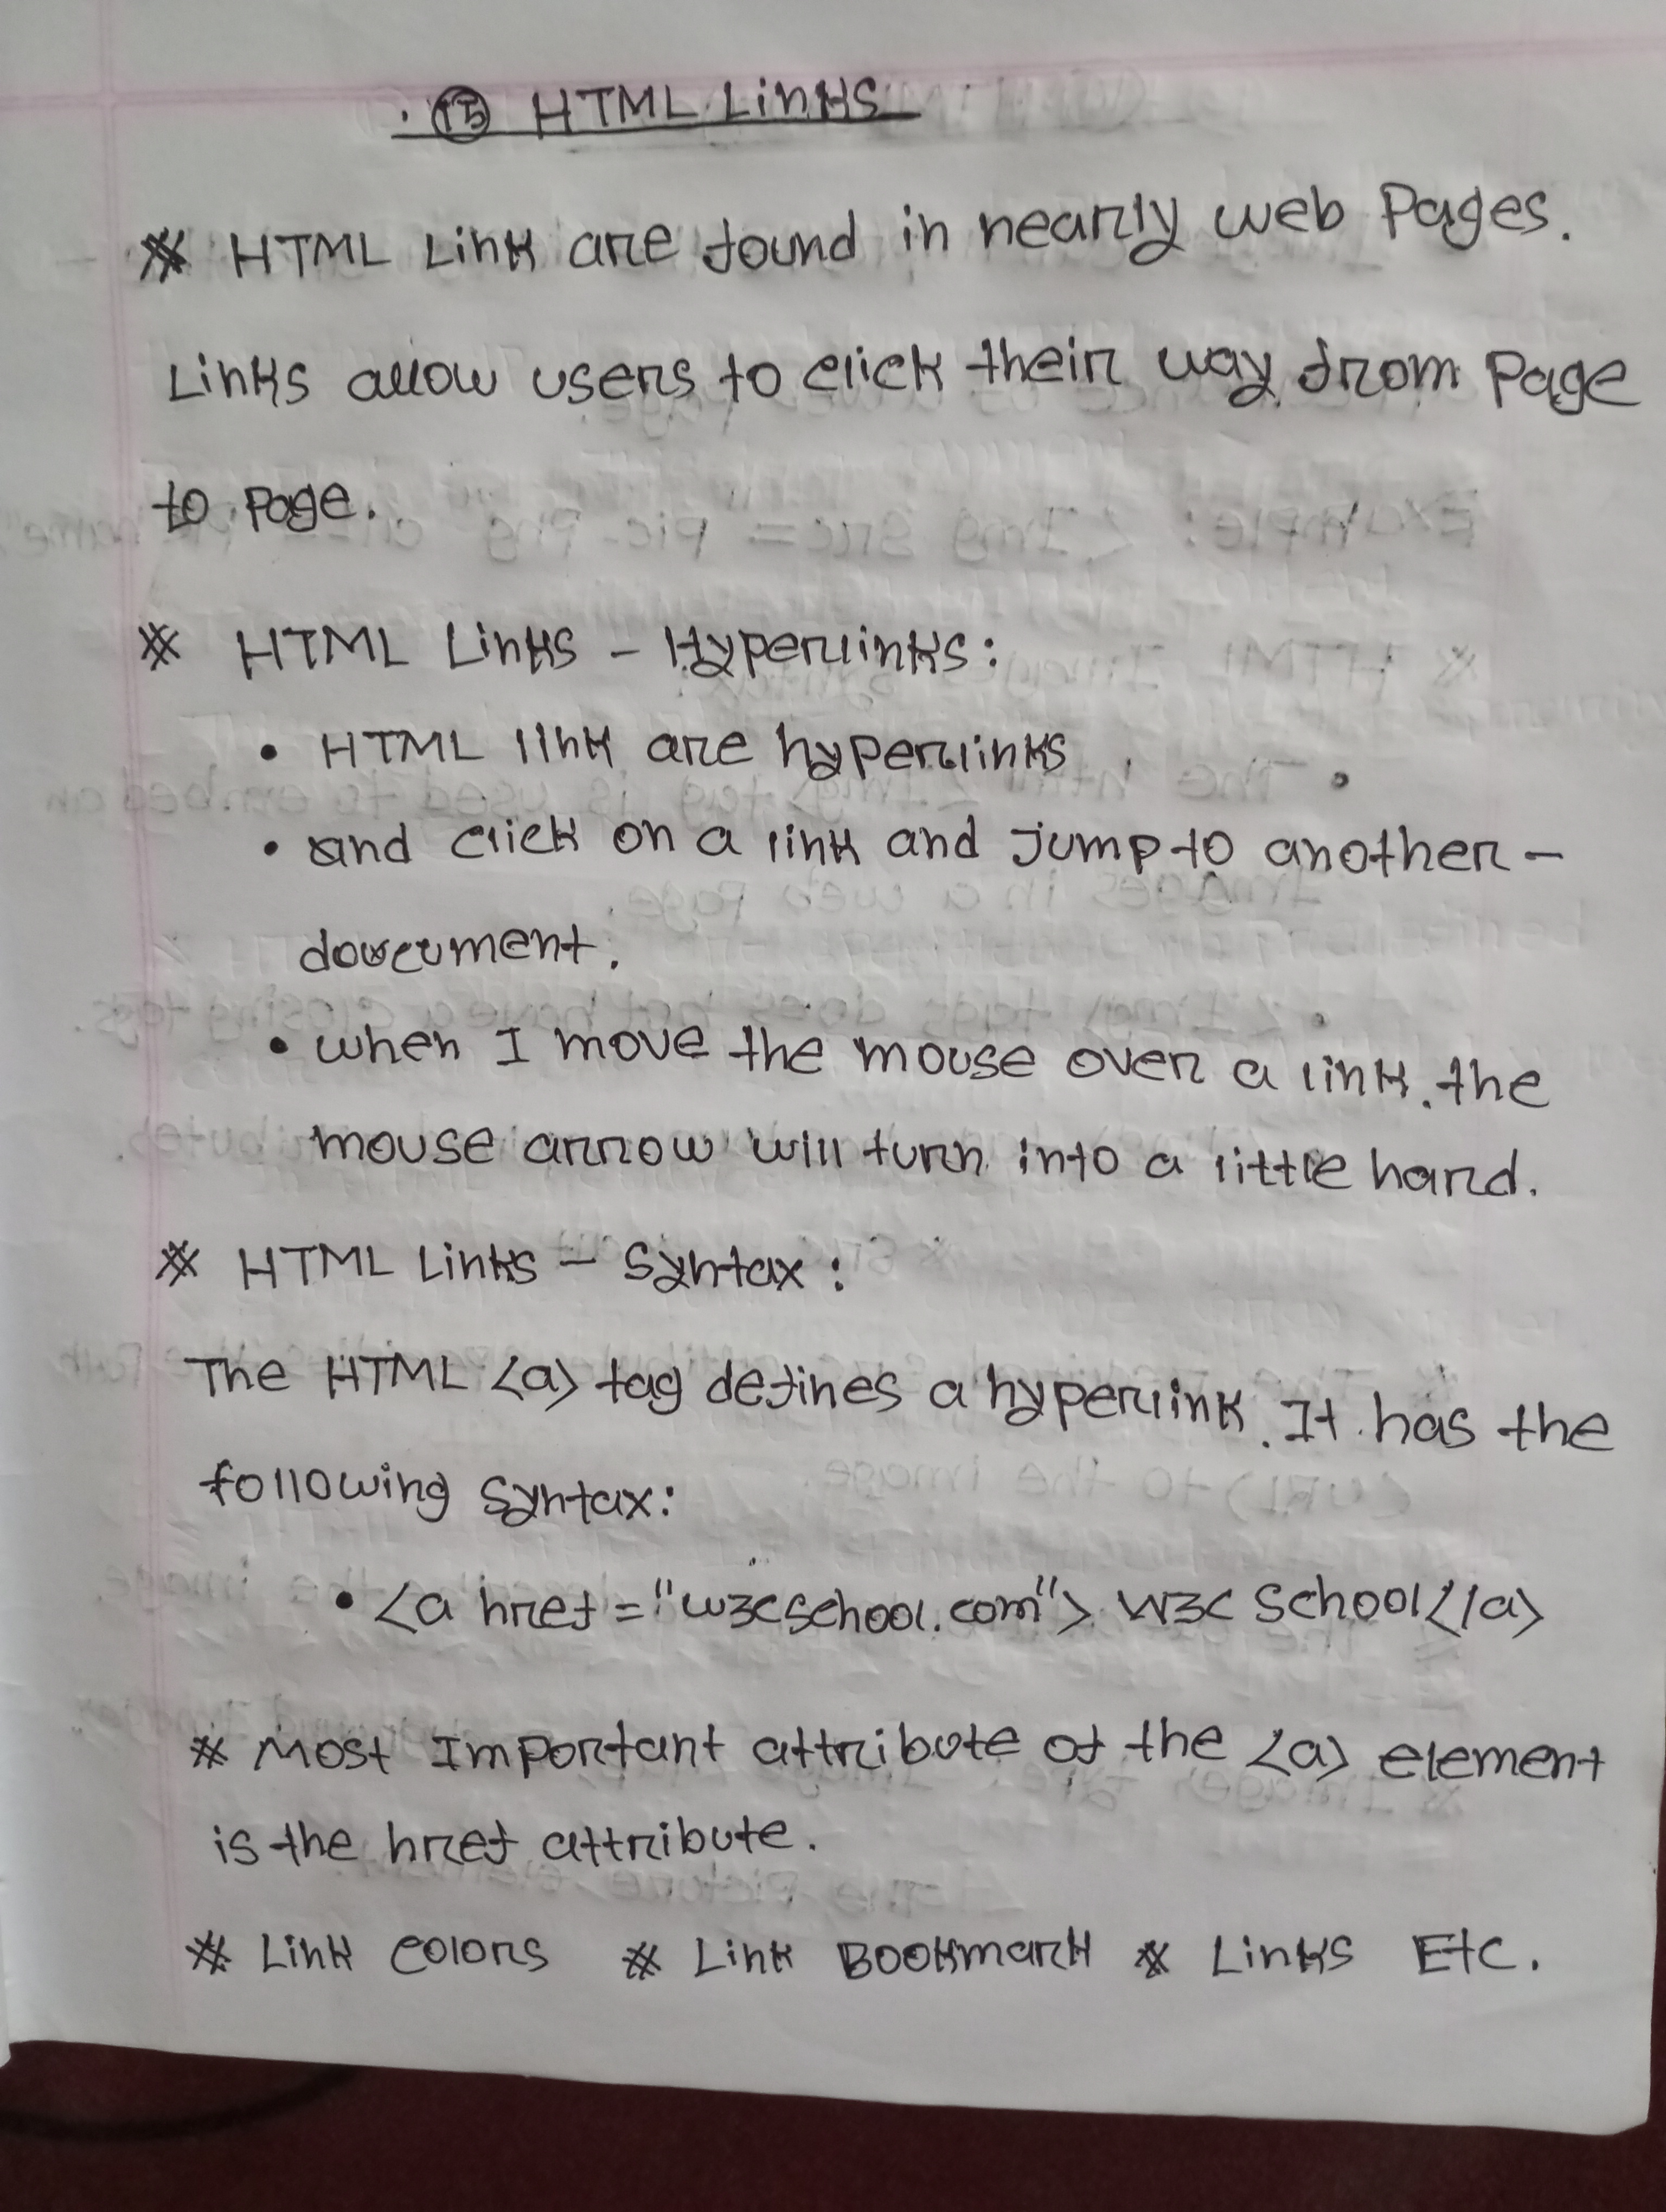 15 HTML Links
* HTML Link are found in nearly web Pages.
Links allow users to click their way from Page
to Page.
* HTML Links - Hyperlinks:
• HTML link are hyperlinks
• and click on a link and jump to another -
document.
• when I move the mouse over a link. the
mouse arrow will turn into a little hand.
* HTML Links - Syntax :
The HTML <a> tag defines a hyperlink. It has the
following Syntax:
• <a href = "w3cschool.com"> W3C School</a>
* Most Important attribute of the <a> element
is the href attribute.
* Link colors * Link Bookmark * Links Etc.